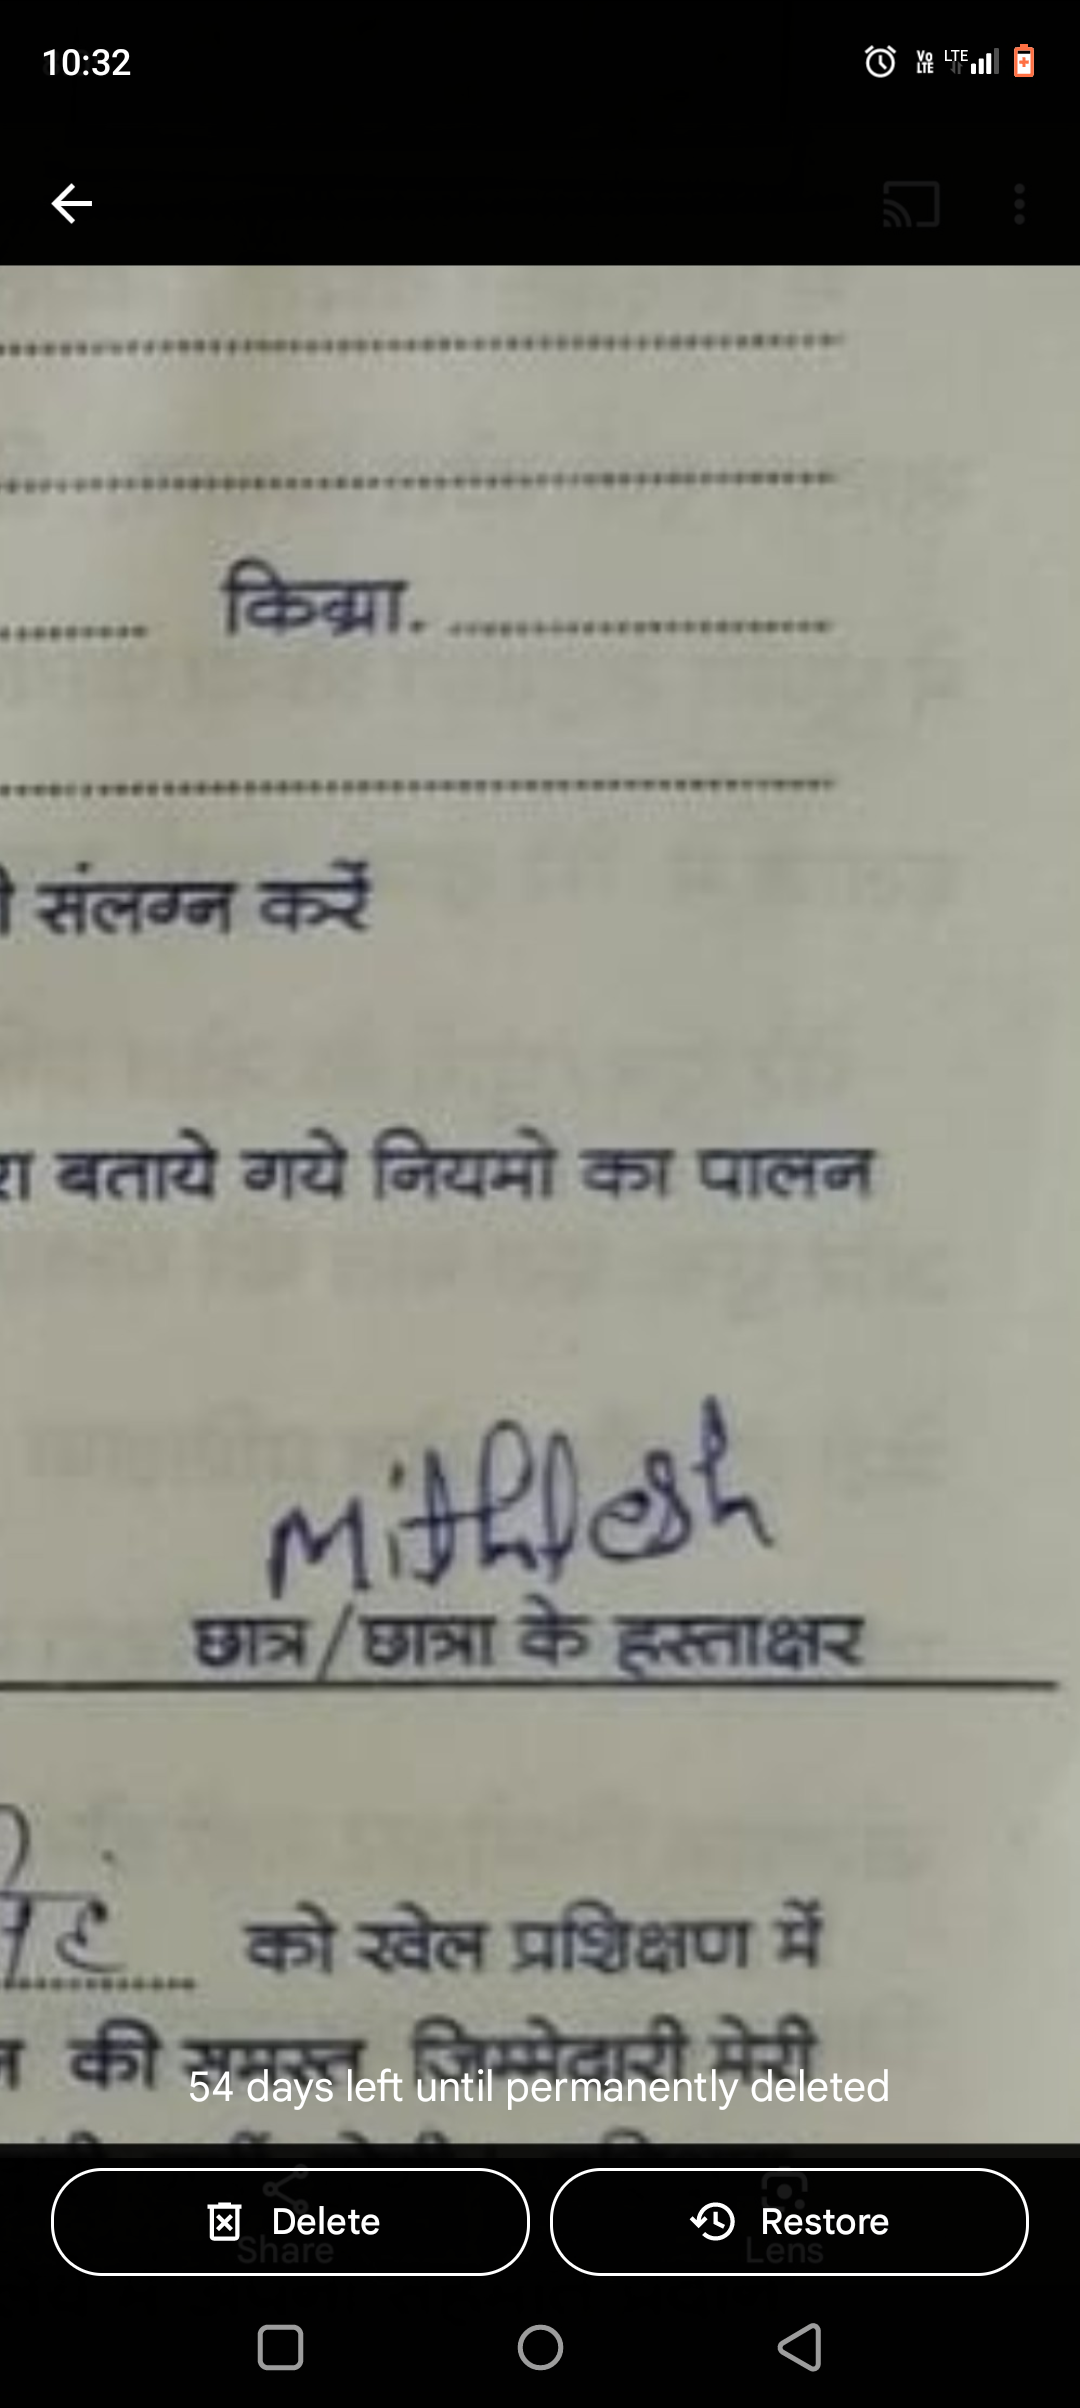 10:32
Vo LTE LTE
किग्रा.
संलग्न करें
बताये गये नियमो का पालन
Mithlesh
छात्र/छात्रा के हस्ताक्षर
को खेल प्रशिक्षण में
की समस्त जिम्मेदारी मेरी
54 days left until permanently deleted
Delete Restore
Share Lens